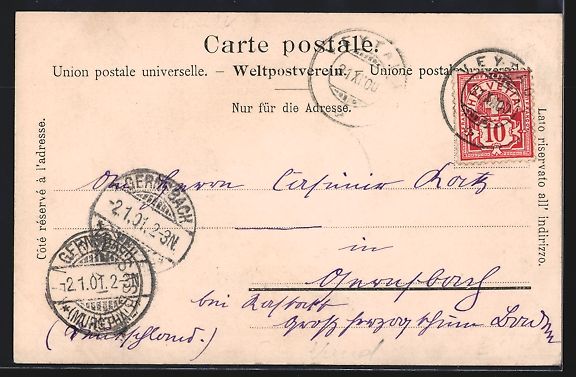 Carte postale.
Union postale universelle. – Weltpostverein. – Unione postale
Nur für die Adresse.
Côté réservé à l'adresse.
Lato riservato all' indirizzo.
HELVETIA
10
VEYT
XII 00
GERNSBACH
-2.1.01.2-3N.
GERNSBACH
-2.1.01.2-3N.
* (MURGTHAL)
Herrn Casimir Katz
in
Gernsbach
bei Rastatt
Grossherzogthum Baden
(Deutschland.)